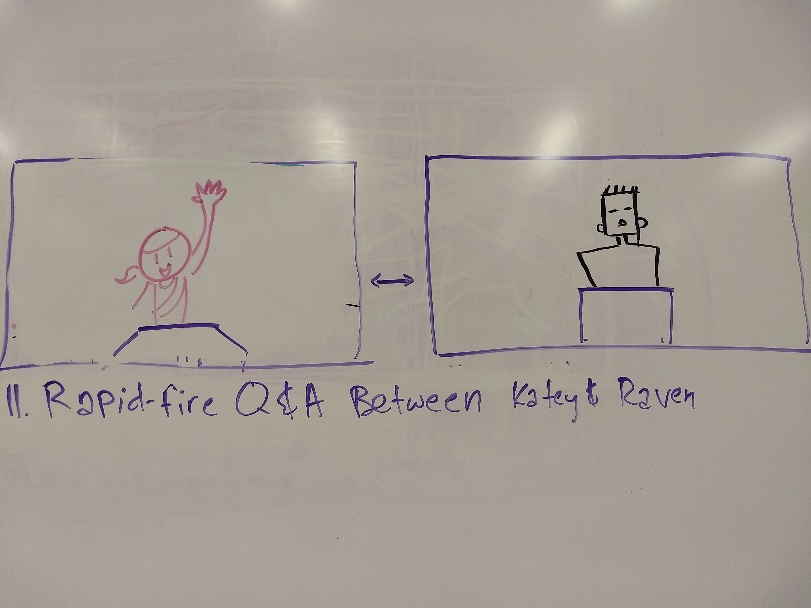 11. Rapid-fire Q&A Between Katey & Raven